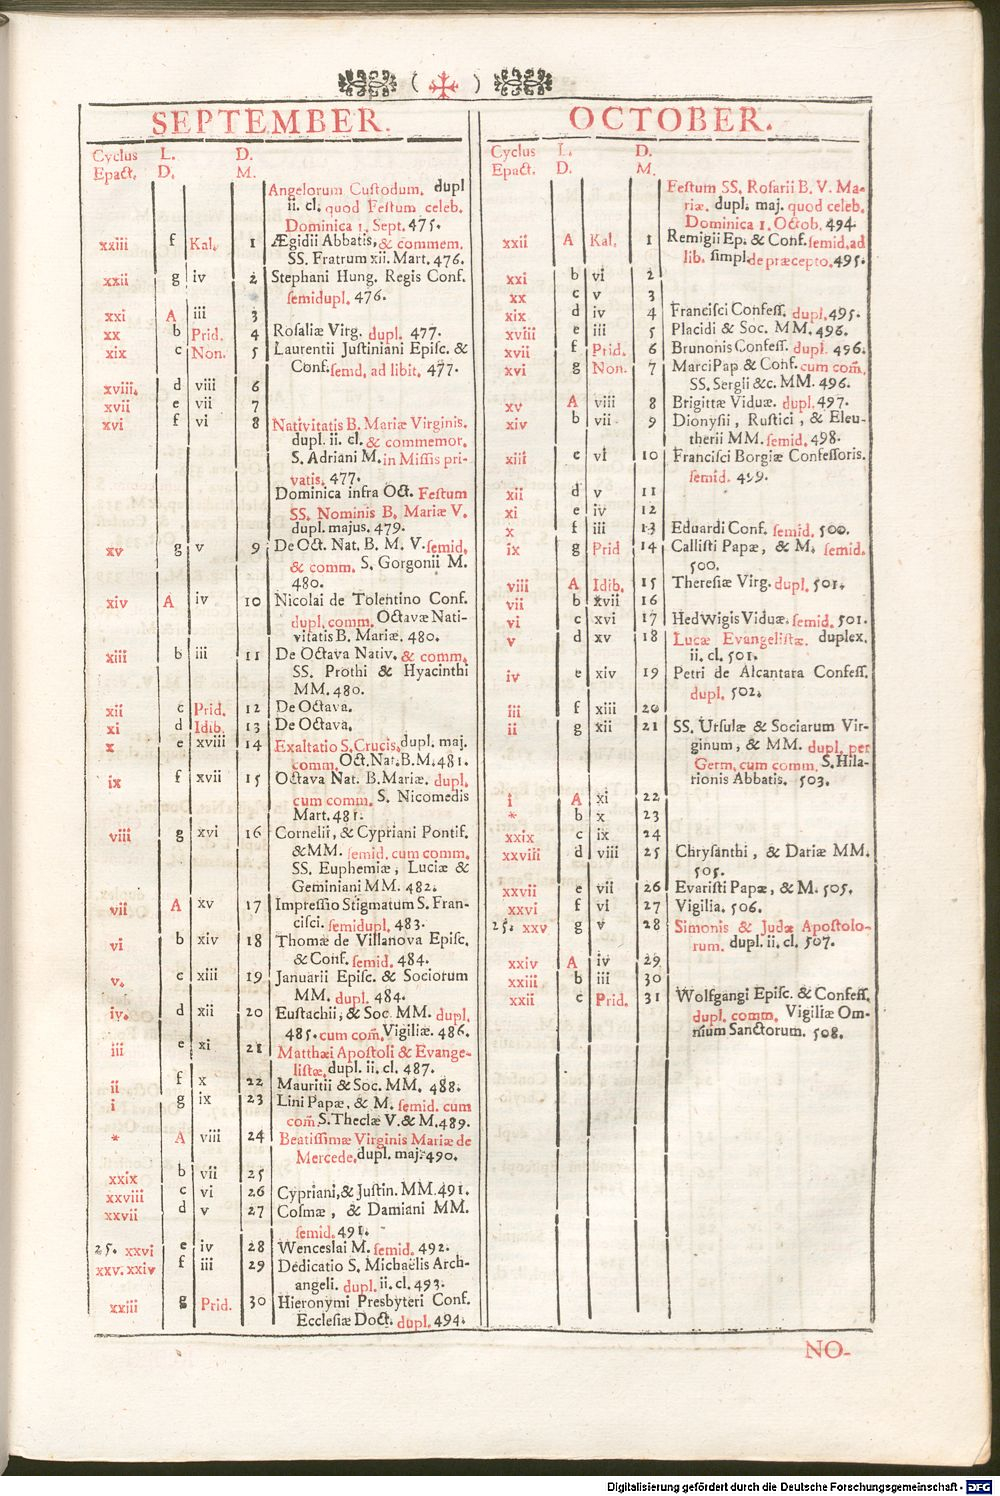 ( ✠ )
SEPTEMBER.
Cyclus L. D.
Epact. D. M.
Angelorum Custodum. dupl
ii. cl. quod Festum celeb.
Dominica 1. Sept. 475.
xxiii f Kal. 1 Ægidii Abbatis, & commem.
SS. Fratrum xii. Mart. 476.
xxii g iv 2 Stephani Hung. Regis Conf.
semidupl. 476.
xxi A iii 3
xx b Prid. 4 Rosaliæ Virg. dupl. 477.
xix c Non. 5 Laurentii Justiniani Episc. &
Conf. semd. ad libit. 477.
xviii. d viii 6
xvii e vii 7
xvi f vi 8 Nativitatis B. Mariæ Virginis.
dupl. ii. cl. & commemor.
S. Adriani M. in Missis pri-
vatis. 477.
Dominica infra Oct. Festum
SS. Nominis B. Mariæ V.
dupl. majus. 479.
xv g v 9 De Oct. Nat. B. M. V. semid.
& comm. S. Gorgonii M.
480.
xiv A iv 10 Nicolai de Tolentino Conf.
dupl. comm. Octavæ Nati-
vitatis B. Mariæ. 480.
xiii b iii 11 De Octava Nativ. & comm.
SS. Prothi & Hyacinthi
MM. 480.
xii c Prid. 12 De Octava.
xi d Idib. 13 De Octava.
x e xviii 14 Exaltatio S. Crucis, dupl. maj.
comm. Oct. Nat. B. M. 481.
ix f xvii 15 Octava Nat. B. Mariæ. dupl.
cum comm. S. Nicomedis
Mart. 481.
viii g xvi 16 Cornelii, & Cypriani Pontif.
& MM. semid. cum comm.
SS. Euphemiæ, Luciæ &
Geminiani MM. 482.
vii A xv 17 Impressio Stigmatum S. Fran-
cisci. semidupl. 483.
vi b xiv 18 Thomæ de Villanova Episc.
& Conf. semid. 484.
v. c xiii 19 Januarii Episc. & Sociorum
MM. dupl. 484.
iv. d xii 20 Eustachii, & Soc. MM. dupl.
485. cum com̃. Vigiliæ. 486.
iii e xi 21 Matthæi Apostoli & Evange-
listæ, dupl. ii. cl. 487.
ii f x 22 Mauritii & Soc. MM. 488.
i g ix 23 Lini Papæ, & M. semid. cum
com̃. S. Theclæ V. & M. 489.
* A viii 24 Beatissimæ Virginis Mariæ de
Mercede, dupl. maj. 490.
xxix b vii 25
xxviii c vi 26 Cypriani, & Justin. MM. 491.
xxvii d v 27 Cosmæ, & Damiani MM.
semid. 491.
25. xxvi e iv 28 Wenceslai M. semid. 492.
xxv. xxiv f iii 29 Dedicatio S. Michaëlis Arch-
angeli. dupl. ii. cl. 493.
xxiii g Prid. 30 Hieronymi Presbyteri Conf.
Ecclesiæ Doct. dupl. 494.
OCTOBER.
Cyclus L. D.
Epact. D. M.
Festum SS. Rosarii B. V. Ma-
riæ. dupl. maj. quod celeb.
Dominica 1. Octob. 494.
xxii A Kal. 1 Remigii Ep. & Conf. semid. ad
lib. simpl. de præcepto. 495.
xxi b vi 2
xx c v 3
xix d iv 4 Francisci Confess. dupl. 495.
xviii e iii 5 Placidi & Soc. MM. 496.
xvii f Prid. 6 Brunonis Confess. dupl. 496.
xvi g Non. 7 Marci Pap & Conf. cum com̃.
SS. Sergii &c. MM. 496.
xv A viii 8 Brigittæ Viduæ. dupl. 497.
xiv b vii 9 Dionysii, Rustici, & Eleu-
therii MM. semid. 498.
xiii c vi 10 Francisci Borgiæ Confessoris.
semid. 499.
xii d v 11
xi e iv 12
x f iii 13 Eduardi Conf. semid. 500.
ix g Prid 14 Callisti Papæ, & M. semid.
500.
viii A Idib. 15 Theresiæ Virg. dupl. 501.
vii b xvii 16
vi c xvi 17 Hedwigis Viduæ. semid. 501.
v d xv 18 Lucæ Evangelistæ. duplex.
ii. cl. 501.
iv e xiv 19 Petri de Alcantara Confess.
dupl. 502.
iii f xiii 20
ii g xii 21 SS. Ursulæ & Sociarum Vir-
ginum, & MM. dupl. per
Germ. cum comm. S. Hila-
rionis Abbatis. 503.
i A xi 22
* b x 23
xxix c ix 24
xxviii d viii 25 Chrysanthi, & Dariæ MM.
505.
xxvii e vii 26 Evaristi Papæ, & M. 505.
xxvi f vi 27 Vigilia. 506.
25. xxv g v 28 Simonis & Judæ Apostolo-
rum. dupl. ii. cl. 507.
xxiv A iv 29
xxiii b iii 30
xxii c Prid. 31 Wolfgangi Episc. & Confess.
dupl. comm. Vigiliæ Om-
nium Sanctorum. 508.
NO-
Digitalisierung gefördert durch die Deutsche Forschungsgemeinschaft - DFG